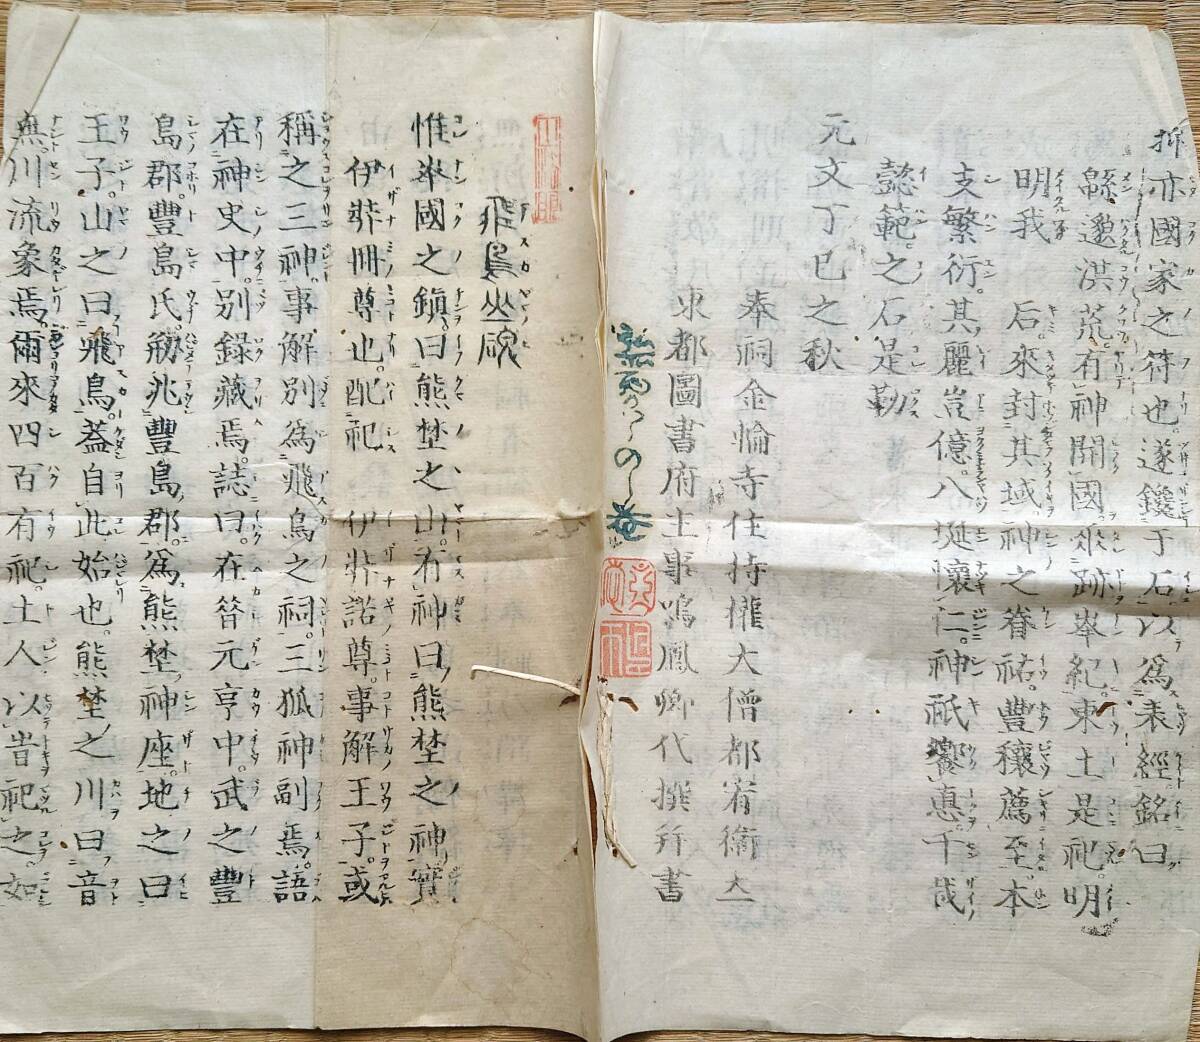 抑亦國家之符也遂鑱于石以爲表經銘曰
緜邈洪荒有神開國垂跡峯紀東土是祀明
明我　后來封其域神之眷祐豐穰薦至本
支繁衍其麗豈億八埏懷仁神祇饗惠千歲
懿範之石是勒
元文丁巳之秋
奉祠金輪寺住持權大僧都宥衞立
東都圖書府主事鳴鳳卿代撰幷書
の
飛鳥山碑
惟峯國之鎮曰熊埜之山有神曰熊埜之神實
伊弉冊尊也配祀　伊弉諾尊事解王子或
稱之三神事解別爲飛鳥之祠三狐神副焉語
在神史中別錄藏焉誌曰在昔元亨中武之豐
島郡豐島氏剏兆豐島郡爲熊埜神座地之曰
王子山之曰飛鳥蓋自此始也熊埜之川曰音
無川流象焉爾來四百有祀土人以旹祀之如